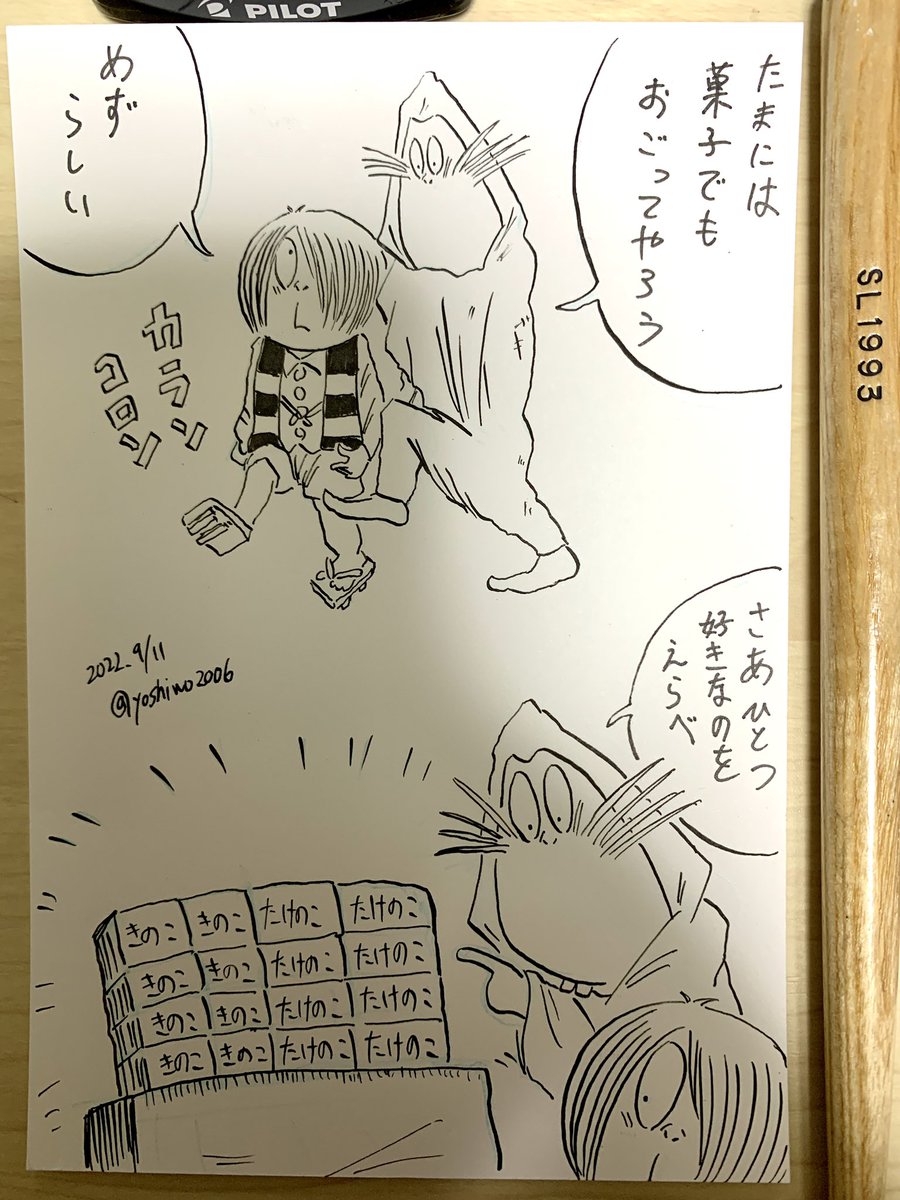 PILOT
たまには
菓子でも
おごってやろう
めず
らしい
カラン
コロン
SL1993
さあひとつ
好きなのを
えらべ
2022.9/11
@yoshiwo2006
きのこ きのこ たけのこ たけのこ
きのこ きのこ たけのこ たけのこ
きのこ きのこ たけのこ たけのこ
きのこ きのこ たけのこ たけのこ